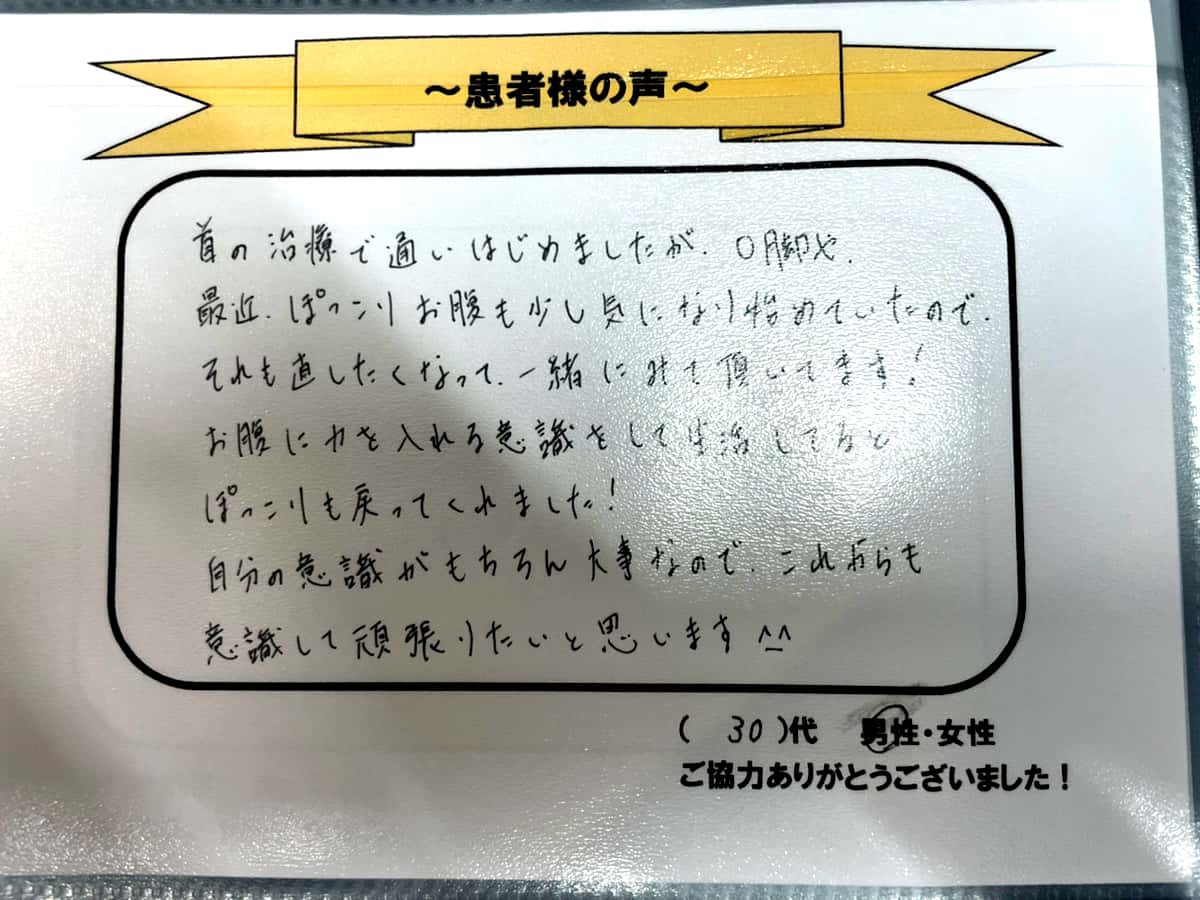 ～患者様の声～
首の治療で通いはじめましたが、O脚や、
最近、ぽっこりお腹も少し気になり始めていたので、
それも直したくなって、一緒にみて頂いてます！
お腹に力を入れる意識をして生活してると
ぽっこりも戻ってくれました！
自分の意識がもちろん大事なので、これからも
意識して頑張りたいと思います^_^
( 30 )代 男性・女性
ご協力ありがとうございました！